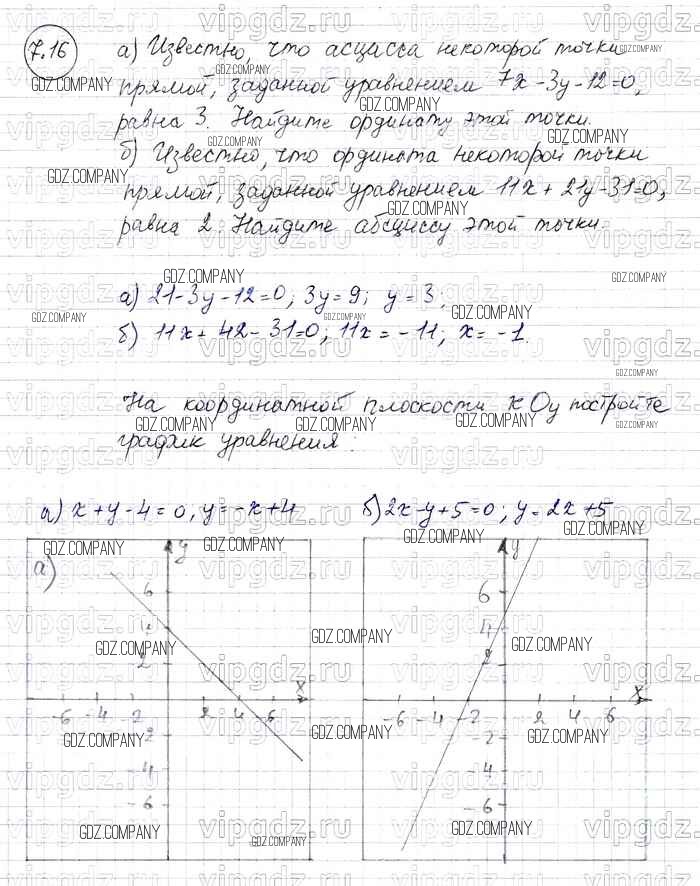 7.16
а) Известно, что асцасса некоторой точки
прямой, заданной уравнением 7x-3y-12=0,
равна 3. Найдите ординату этой точки.
б) Известно, что ордината некоторой точки
прямой, заданной уравнением 11x+21y-31=0,
равна 2. Найдите абсциссу этой точки.
а) 21-3y-12=0; 3y=9; y=3;
б) 11x+42-31=0; 11x=-11; x=-1.
На координатной плоскости xOy постройте
график уравнения:
а) x+y-4=0, y=-x+4
б) 2x-y+5=0; y=2x+5
а)
y
6
4
2
x
-6 -4 -2 2 4 6
-2
-4
-6
y
6
4
2
x
-6 -4 -2 2 4 6
-2
-4
-6
GDZ.COMPANY
vipgdz.ru